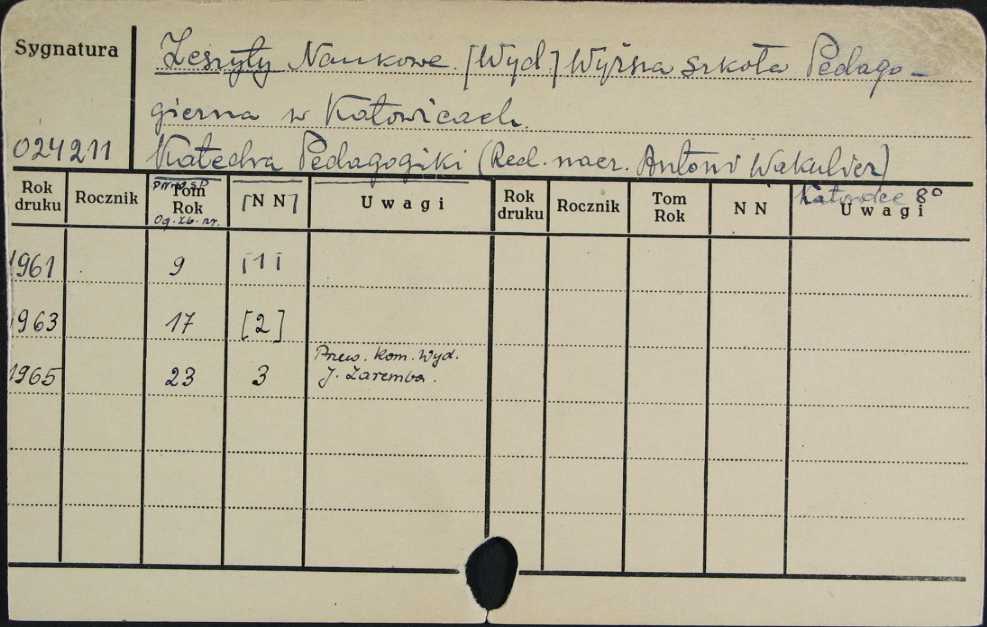 Sygnatura
Zeszyty Naukowe. [Wyd.] Wyższa szkoła Pedago-
giczna w Katowicach.
024211
Katedra Pedagogiki (Red. nacz. Antoni Wakulicz)
Katowice 8°
Rok druku Rocznik Tom Rok [N N] Uwagi Rok druku Rocznik Tom Rok N N Uwagi
Og. zb. nr.
1961 9 [1]
1963 17 [2]
1965 23 3 Przew. Kom. Wyd.
J. Zaremba.